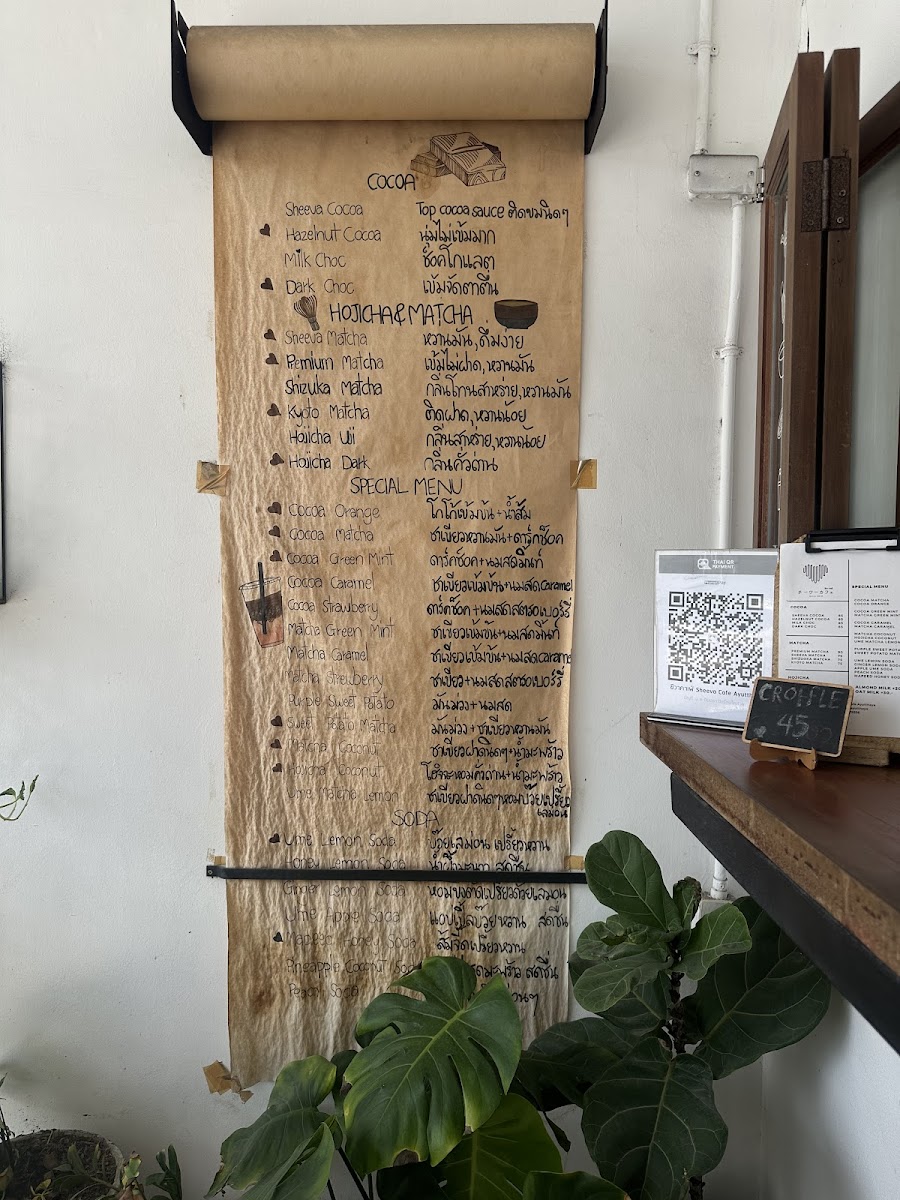 COCOA
Sheeva Cocoa Top cocoa sauce ติดขมนิดๆ
Hazelnut Cocoa นุ่มไม่เข้มมาก
Milk Choc ช็อคโกแลต
Dark Choc เข้มจัดตาตื่น
HOJICHA&MATCHA
Sheeva Matcha หวานมัน,ดื่มง่าย
Premium Matcha เข้มไม่ฝาด,หวานมัน
Shizuka Matcha กลิ่นโทนสาหร่าย,หวานมัน
Kyoto Matcha ติดฝาด,หวานน้อย
Hojicha Uji กลิ่นสาหร่าย,หวานน้อย
Hojicha Dark กลิ่นคั่วถ่าน
SPECIAL MENU
Cocoa Orange โกโก้เข้มข้น+น้ำส้ม
Cocoa Matcha ชาเขียวหวานมัน+ดาร์กช็อค
Cocoa Green Mint ดาร์กช็อค+นมสดมิ้นท์
Cocoa Caramel ชาเขียวเข้มข้น+นมสดcaramel
Cocoa Strawberry ดาร์กช็อค+นมสดสตรอเบอร์รี่
Matcha Green Mint ชาเขียวเข้มข้น+นมสดมิ้นท์
Matcha Caramel ชาเขียวเข้มข้น+นมสดcaramel
Matcha Strewberry ชาเขียว+นมสดสตรอเบอร์รี่
Purple Sweet Potato มันม่วง+นมสด
Sweet Potato Matcha มันม่วง+ชาเขียวหวานมัน
Matcha Coconut ชาเขียวฝาดนิดๆ+น้ำมะพร้าว
Hojicha Coconut โฮจิฉะหอมคั่วถ่าน+น้ำมะพร้าว
Ume Matcha Lemon ชาเขียวฝาดนิดๆหอมบ๊วยเปรี้ยว
เลม่อน
SODA
Ume Lemon Soda บ๊วยเลม่อน เปรี้ยวหวาน
Honey Lemon Soda สดชื่น
Ginger Lemon Soda หอมขิงตัดเปรี้ยวด้วยเลม่อน
Ume Apple Soda แอปเปิ้ลบ๊วยหวาน สดชื่น
Honey Soda ส้มจี๊ดเปรี้ยวหวาน
Pineapple Coconut Soda มะพร้าว สดชื่น
Soda
THAI QR
PAYMENT
Sheeva Cafe
CROFFLE
45
SPECIAL MENU
COCOA MATCHA
COCOA ORANGE
COCOA GREEN MINT
COCOA CARAMEL
MATCHA CARAMEL
COCOA
SHEEVA COCOA
HAZELNUT COCOA
MILK CHOC
DARK CHOC
MATCHA
PREMIUM MATCHA
SHEEVA MATCHA
SHIZUKA MATCHA
KYOTO MATCHA
HOJICHA
MATCHA COCONUT
HOJICHA COCONUT
UME MATCHA LEMON
UME LEMON SODA
GINGER LEMON SODA
APPLE UME SODA